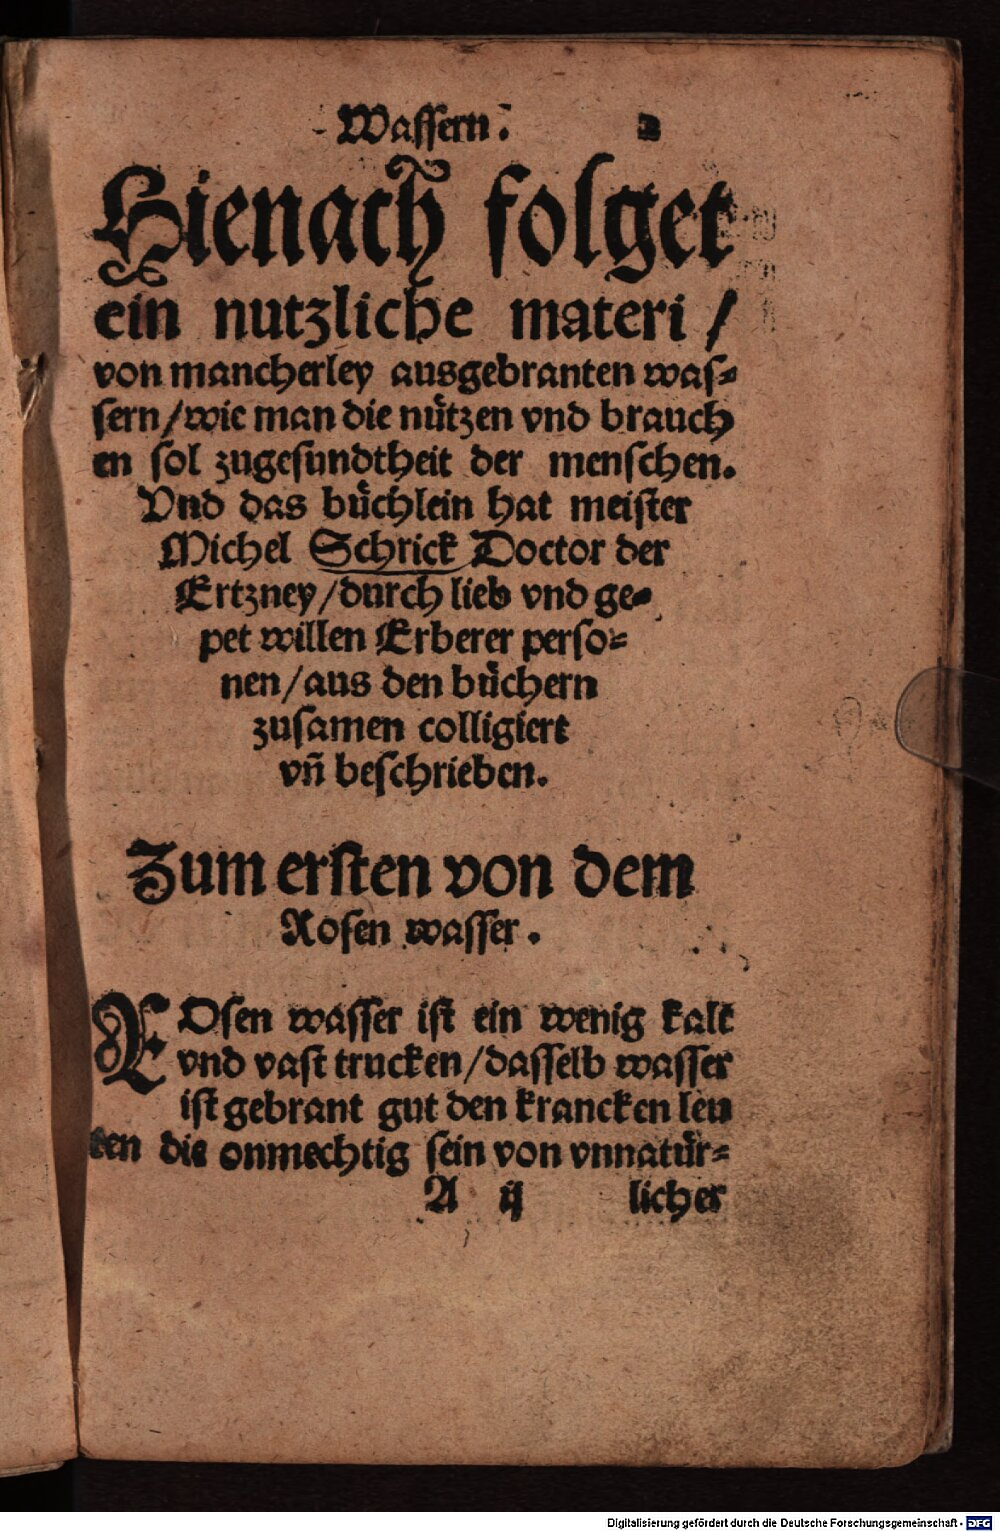 Wassern. 2
Hienach folget
ein nutzliche materi /
von mancherley ausgebranten was⸗
sern / wie man die nützen vnd brauch
en sol zugesundtheit der menschen.
Vnd das büchlein hat meister
Michel Schrick Doctor der
Ertzney / durch lieb vnd ge⸗
pet willen Erberer perso⸗
nen / aus den büchern
zusamen colligiert
vn̄ beschrieben.
Zum ersten von dem
Rosen wasser.
ROsen wasser ist ein wenig kalt
vnd vast trucken / dasselb wasser
ist gebrant gut den krancken leu
ten die onmechtig sein von vnnatür⸗
A ij licher
Digitalisierung gefördert durch die Deutsche Forschungsgemeinschaft - DFG